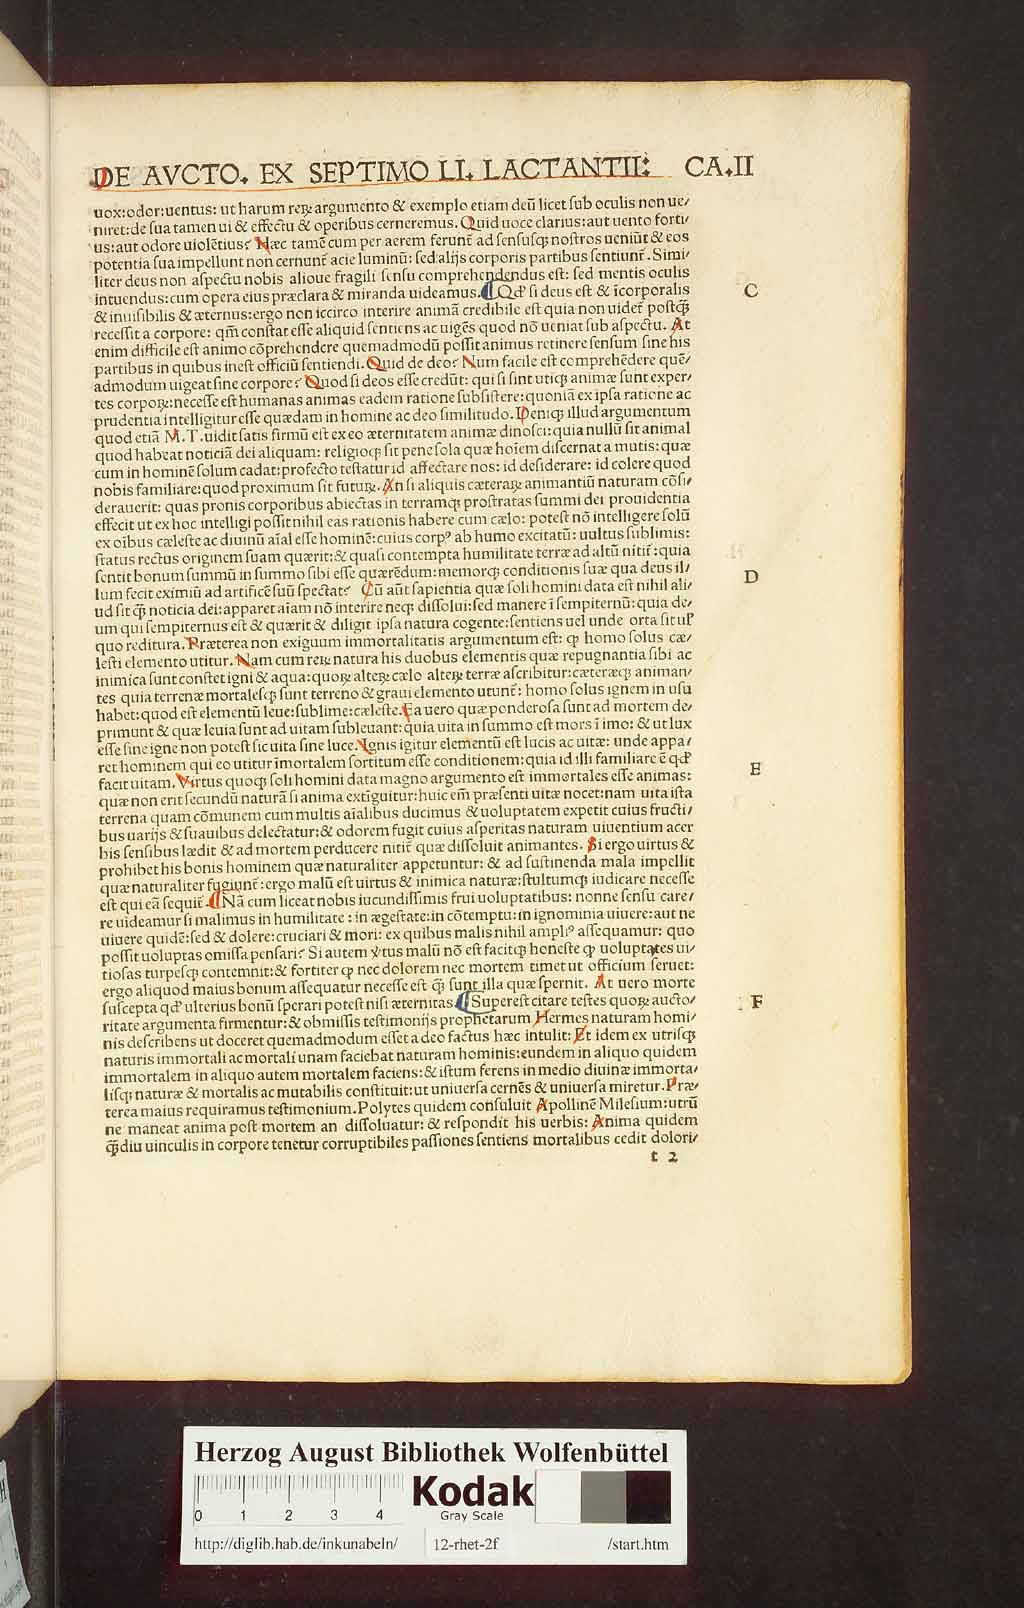 DE AVCTO. EX SEPTIMO LI. LACTANTII: CA.II
uox:odor:uentus: ut harum reꝝ argumento & exemplo etiam deū licet sub oculis non ue/
niret: de sua tamen ui & effectu & operibus cerneremus. Quid uoce clarius: aut uento forti/
us: aut odore uiolētius? Hęc tamē cum per aerem ferunt̄ ad sensusqꝫ nostros ueniūt & eos
potentia sua impellunt non cernunt̄ acie luminū: sed alijs corporis partibus sentiunt̄. Simi/
liter deus non aspectu nobis alioue fragili sensu comprehendendus est: sed mentis oculis
intuendus: cum opera eius præclara & miranda uideamus. ¶ Qđ si deus est & īcorporalis
C
& inuisibilis & æternus: ergo non iccirco interire animā credibile est quia non uidet̄ postq̄
recessit a corpore: qm̄ constat esse aliquid sentiens ac uigēs quod nō ueniat sub aspectu. At
enim difficile est animo cōprehendere quemadmodū possit animus retinere sensum sine his
partibus in quibus inest officiū sentiendi. Quid de deo? Num facile est comprehēdere quē/
admodum uigeat sine corpore? Quod si deos esse credūt: qui si sint utiqꝫ animæ sunt exper/
tes corpoꝝ: necesse est humanas animas eadem ratione subsistere: quoniā ex ipsa ratione ac
prudentia intelligitur esse quædam in homine ac deo similitudo. Deniqꝫ illud argumentum
quod etiā M.T. uidit satis firmū est ex eo æternitatem animæ dinosci: quia nullū sit animal
quod habeat noticiā dei aliquam: religioqꝫ sit pene sola quæ hoīem discernat a mutis: quæ
cum in hominē solum cadat: profecto testatur id affectare nos: id desiderare: id colere quod
nobis familiare: quod proximum sit futuꝝ. An si aliquis cæteraꝝ animantiū naturam cōsi/
derauerit: quas pronis corporibus abiectas in terramqꝫ prostratas summi dei prouidentia
effecit ut ex hoc intelligi possit nihil eas rationis habere cum cælo: potest nō intelligere solū
ex oībus cæleste ac diuinū aīal esse hominē: cuius corpꝰ ab humo excitatū: uultus sublimis:
status rectus originem suam quærit: & quasi contempta humilitate terræ ad altū nitit̄: quia
sentit bonum summū in summo sibi esse quærēdum: memorqꝫ conditionis suæ qua deus il/
D
lum fecit eximiū ad artificē suū spectat? Cū aūt sapientia quæ soli homini data est nihil ali/
ud sit q̄ noticia dei: apparet aīam nō interire neqꝫ dissolui: sed manere ī sempiternū: quia de/
um qui sempiternus est & quærit & diligit ipsa natura cogente: sentiens uel unde orta sit ul̓
quo reditura. Præterea non exiguum immortalitatis argumentum est: ꝙ homo solus cæ/
lesti elemento utitur. Nam cum reꝝ natura his duobus elementis quæ repugnantia sibi ac
inimica sunt constet igni & aqua: quoꝝ alteꝝ cælo alteꝝ terræ ascribitur: cæteræqꝫ animan/
tes quia terrenæ mortalesqꝫ sunt terreno & graui elemento utunt̄: homo solus ignem in usu
habet: quod est elementū leue: sublime: cæleste. Ea uero quæ ponderosa sunt ad mortem de/
primunt & quæ leuia sunt ad uitam subleuant: quia uita in summo est mors ī imo: & ut lux
esse sine igne non potest sic uita sine luce. Ignis igitur elementū est lucis ac uitæ: unde appa/
ret hominem qui eo utitur īmortalem sortitum esse conditionem: quia id illi familiare ē qđ
E
facit uitam. Virtus quoqꝫ soli homini data magno argumento est immortales esse animas:
quæ non erit secundū naturā si anima extīguitur: huic em̄ præsenti uitæ nocet: nam uita ista
terrena quam cōmunem cum multis aīalibus ducimus & uoluptatem expetit cuius fructi/
bus uarijs & suauibus delectatur: & odorem fugit cuius asperitas naturam uiuentium acer
bis sensibus lædit & ad mortem perducere nitit̄ quæ dissoluit animantes. Si ergo uirtus &
prohibet his bonis hominem quæ naturaliter appetuntur: & ad sustinenda mala impellit
quæ naturaliter fugiunt̄: ergo malū est uirtus & inimica naturæ: stultumqꝫ iudicare necesse
est qui eā sequit̄. ¶ Nā cum liceat nobis iucundissimis frui uoluptatibus: nonne sensu care/
re uideamur si malimus in humilitate: in ægestate: in cōtemptu: in ignominia uiuere: aut ne
uiuere quidē: sed & dolere: cruciari & mori: ex quibus malis nihil ampliꝰ assequamur: quo
possit uoluptas omissa pensari? Si autem v̓tus malū nō est facitqꝫ honeste ꝙ uoluptates ui/
tiosas turpesqꝫ contemnit: & fortiter ꝙ nec dolorem nec mortem timet ut officium seruet:
ergo aliquod maius bonum assequatur necesse est q̄ sunt illa quæ spernit. At uero morte
suscepta qđ ulterius bonū sperari potest nisi æternitas ¶ Superest citare testes quoꝝ aucto/
F
ritate argumenta firmentur: & obmissis testimonijs prophetarum Hermes naturam homi/
nis describens ut doceret quemadmodum esset a deo factus hæc intulit: Et idem ex utrisqꝫ
naturis immortali ac mortali unam faciebat naturam hominis: eundem in aliquo quidem
immortalem in aliquo autem mortalem faciens: & istum ferens in medio diuinæ immorta/
lisqꝫ naturæ & mortalis ac mutabilis constituit: ut uniuersa cernēs & uniuersa miretur. Præ/
terea maius requiramus testimonium. Polytes quidem consuluit Apollinē Milesium: utrū
ne maneat anima post mortem an dissoluatur: & respondit his uerbis: Anima quidem
q̄diu uinculis in corpore tenetur corruptibiles passiones sentiens mortalibus cedit dolori/
t 2
Herzog August Bibliothek Wolfenbüttel
0 1 2 3 4
Kodak
Gray Scale
http://diglib.hab.de/inkunabeln/ 12-rhet-2f /start.htm